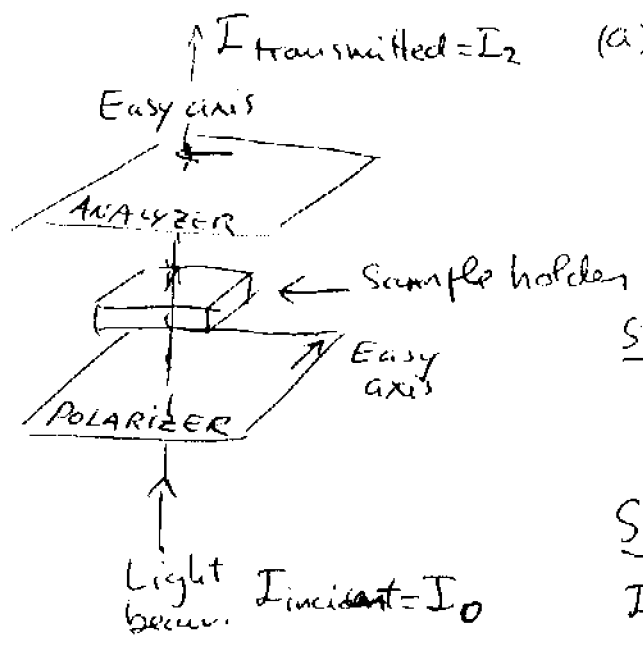 I transmitted = I₂
(a)
Easy axis
ANALYZER
Sample holder
S
Easy
axis
POLARIZER
S
Light I incident = I₀
I
beam.